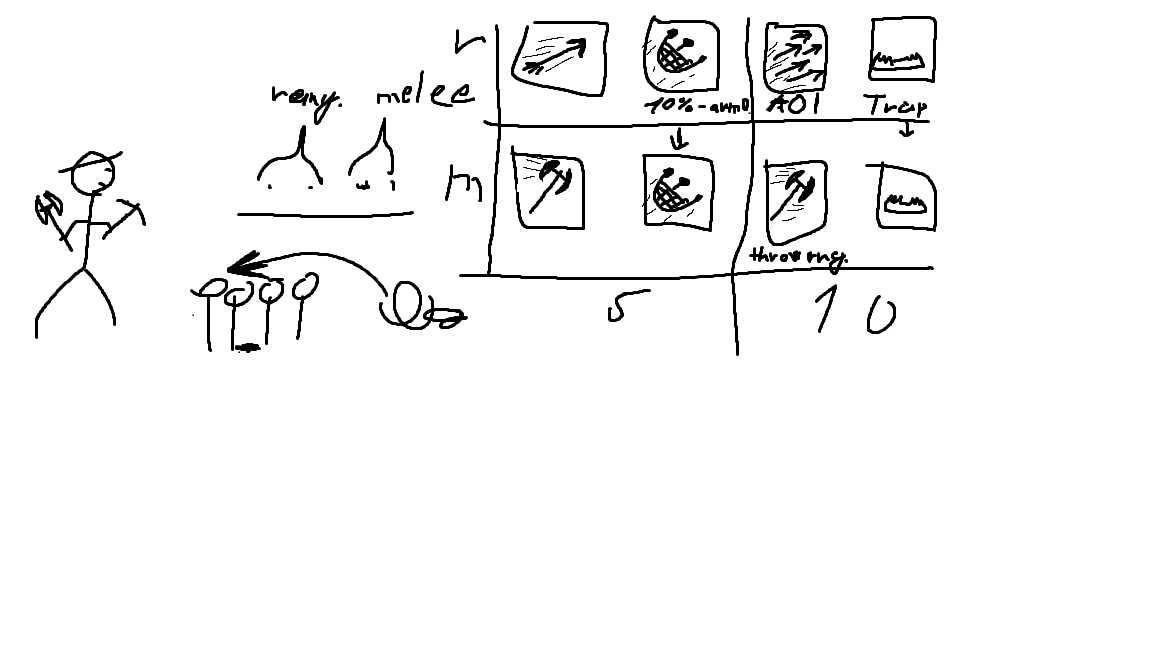 r
rang. melee
10%-armo AOI Trap
m
throwing.
5 10